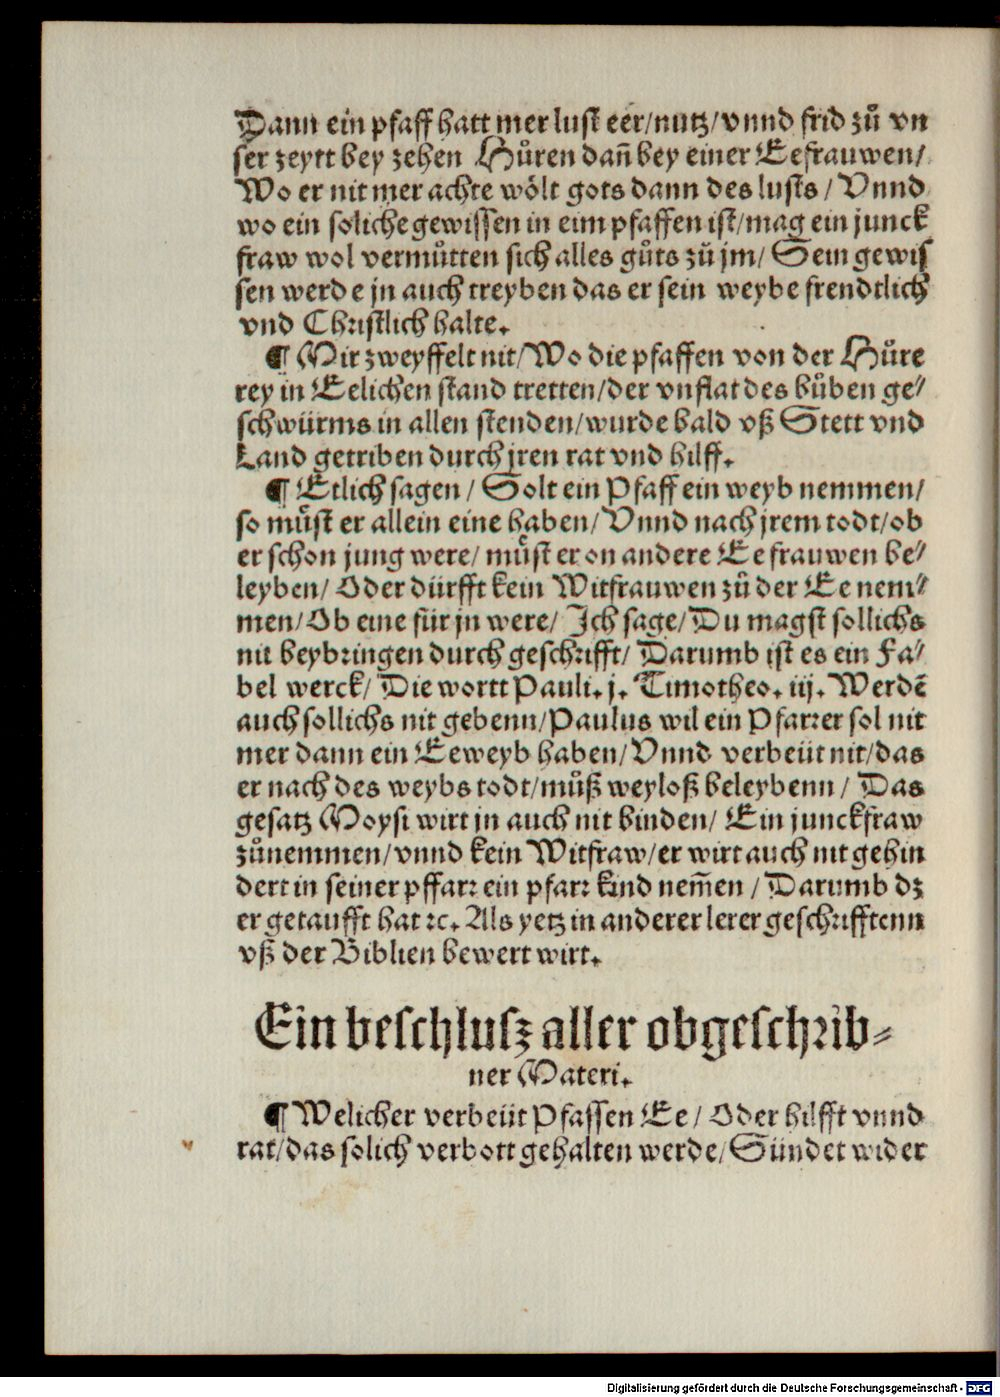 Dann ein pfaff hatt mer lust eer/nutz/vnnd frid zů vn
ser zeytt bey zehen Hůren dañ bey einer Eefrauwen/
Wo er nit mer achte wölt gots dann des lusts / Vnnd
wo ein soliche gewissen in eim pfaffen ist/mag ein junck
fraw wol vermůtten sich alles gůts zů jm/ Sein gewis
sen werde jn auch treyben das er sein weybe frendtlich
vnd Christlich halte.
¶ Mir zweyffelt nit/Wo die pfaffen von der Hůre
rey in Eelichen stand tretten/der vnflat des bůben ge⸗
schwürms in allen stenden/wurde bald vß Stett vnd
Land getriben durch jren rat vnd hilff.
¶ Etlich sagen / Solt ein Pfaff ein weyb nemmen/
so můst er allein eine haben/Vnnd nach jrem todt/ob
er schon jung were/ můst er on andere Eefrauwen be⸗
leyben/ Oder dürfft kein Witfrauwen zů der Ee nem⸗
men/Ob eine für jn were/ Ich sage/Du magst sollichs
nit beybringen durch geschrifft/ Darumb ist es ein Fa⸗
bel werck/ Die wortt Pauli. j. Timotheo. iij. Werdē
auch sollichs nit gebenn/Paulus wil ein Pfarrer sol nit
mer dann ein Eeweyb haben/Vnnd verbeüt nit/das
er nach des weybs todt/můß weyloß beleybenn / Das
gesatz Moysi wirt jn auch nit binden/ Ein junckfraw
zůnemmen/vnnd kein Witfraw/er wirt auch nit gehin
dert in seiner pffarr ein pfarr kind nem̄en / Darumb dz
er getaufft hat ꝛc. Als yetz in anderer lerer geschrifftenn
vß der Biblien bewert wirt.
Ein beschlusz aller obgeschrib⸗
ner Materi.
¶ Welicher verbeüt Pfaffen Ee / Oder hilfft vnnd
rat/das solich verbott gehalten werde/Sündet wider
Digitalisierung gefördert durch die Deutsche Forschungsgemeinschaft - DFG